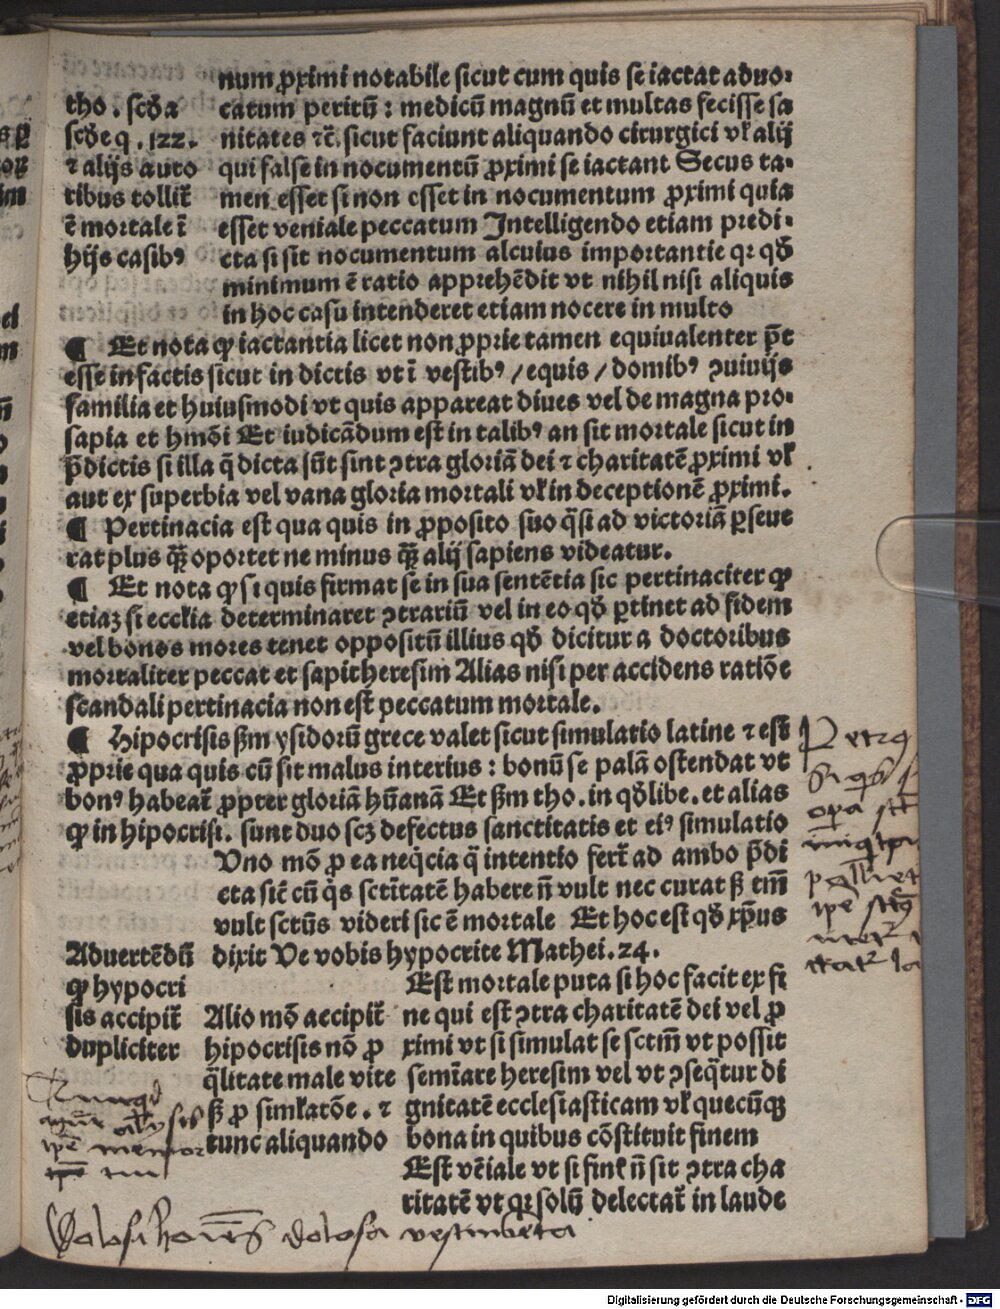 num ꝓximi notabile sicut cum quis se iactat aduo⸗
catum peritū : medicū magnū et multas fecisse sa
nitates ⁊c̄. sicut faciunt aliquando cirurgici vƚ alij
qui false in nocumentū ꝓximi se iactant Secus ta⸗
men esset si non esset in nocumentum ꝓximi quia
esset veniale peccatum Intelligendo etiam predi⸗
cta si sit nocumentum alcuius importantie qꝛ qđ
minimum ē ratio apprehēdit vt nihil nisi aliquis
in hoc casu intenderet etiam nocere in multo
tho . scđa
scđe q . 122.
⁊ alijs aucto
ribus tollit᷑
ē mortale ī
hijs casibꝰ
¶ Et nota ꝙ iactantia licet non ꝓprie tamen equiualenter p̄t
esse in factis sicut in dictis vt ī vestibꝰ / equis / domibꝰ ꝯuiuijs
familia et huiusmodi vt quis appareat diues vel de magna pro⸗
sapia et hmōi Et iudicādum est in talibꝰ an sit mortale sicut in
p̄dictis si illa q̄ dicta sūt sint ꝯtra gloriā dei ⁊ charitatē ꝓximi vƚ
aut ex superbia vel vana gloria mortali vƚ in deceptionē ꝓximi.
¶ Pertinacia est qua quis in ꝓposito suo q̄si ad victoriā ꝑseue
rat plus q̄ꝫ oportet ne minus q̄ꝫ alij sapiens videatur.
¶ Et nota ꝙ si quis firmat se in sua sentētia sic pertinaciter ꝙ
etiaꝫ si eccƚia determinaret ꝯtrariū vel in eo qđ ꝑtinet ad fidem
vel bonos mores tenet oppositū illius qđ dicitur a doctoribus
mortaliter peccat et sapit heresim Alias nisi per accidens ratiōe
scandali pertinacia non est peccatum mortale.
¶ Hipocrisis ẜm ysidorū grece valet sicut simulatio latine ⁊ est
ꝓprie qua quis cū sit malus interius : bonū se palā ostendat vt
bonꝰ habeat᷑ ꝓpter gloriā hūanā Et ẜm tho. in qđlibe. et alias
ꝙ in hipocrisi. sunt duo scꝫ defectus sanctitatis et eiꝰ simulatio
Uno mō ꝓ ea neq̇cia q̄ intentio fert᷑ ad ambo p̄di
cta sic̄ cū q̇s sctītatē habere n̄ vult nec curat ẜ tm̄
vult sctūs videri sic ē mortale Et hoc est qđ xp̄us
dixit Ve vobis hypocrite Mathei. 24.
Aduertēdū
ꝙ hypocri
sis accipit᷑
dupliciter
Alio mō accipit᷑
hipocrisis nō ꝓ
q̄litate male vite
ẜ ꝓ simƚatōe . ⁊
tunc aliquando
Est mortale puta si hoc facit ex fi
ne qui est ꝯtra charitatē dei vel ꝓ
ximi vt si simulat se sctm̄ vt possit
semīare heresim vel vt ꝯseq̄tur di
gnitatē ecclesiasticam vƚ quecūqꝫ
bona in quibus cōstituit finem
Est vēiale vt si finƚ n̄ sit ꝯtra cha
ritatē vt qꝛ solū delectat᷑ in laude
Digitalisierung gefördert durch die Deutsche Forschungsgemeinschaft - DFG